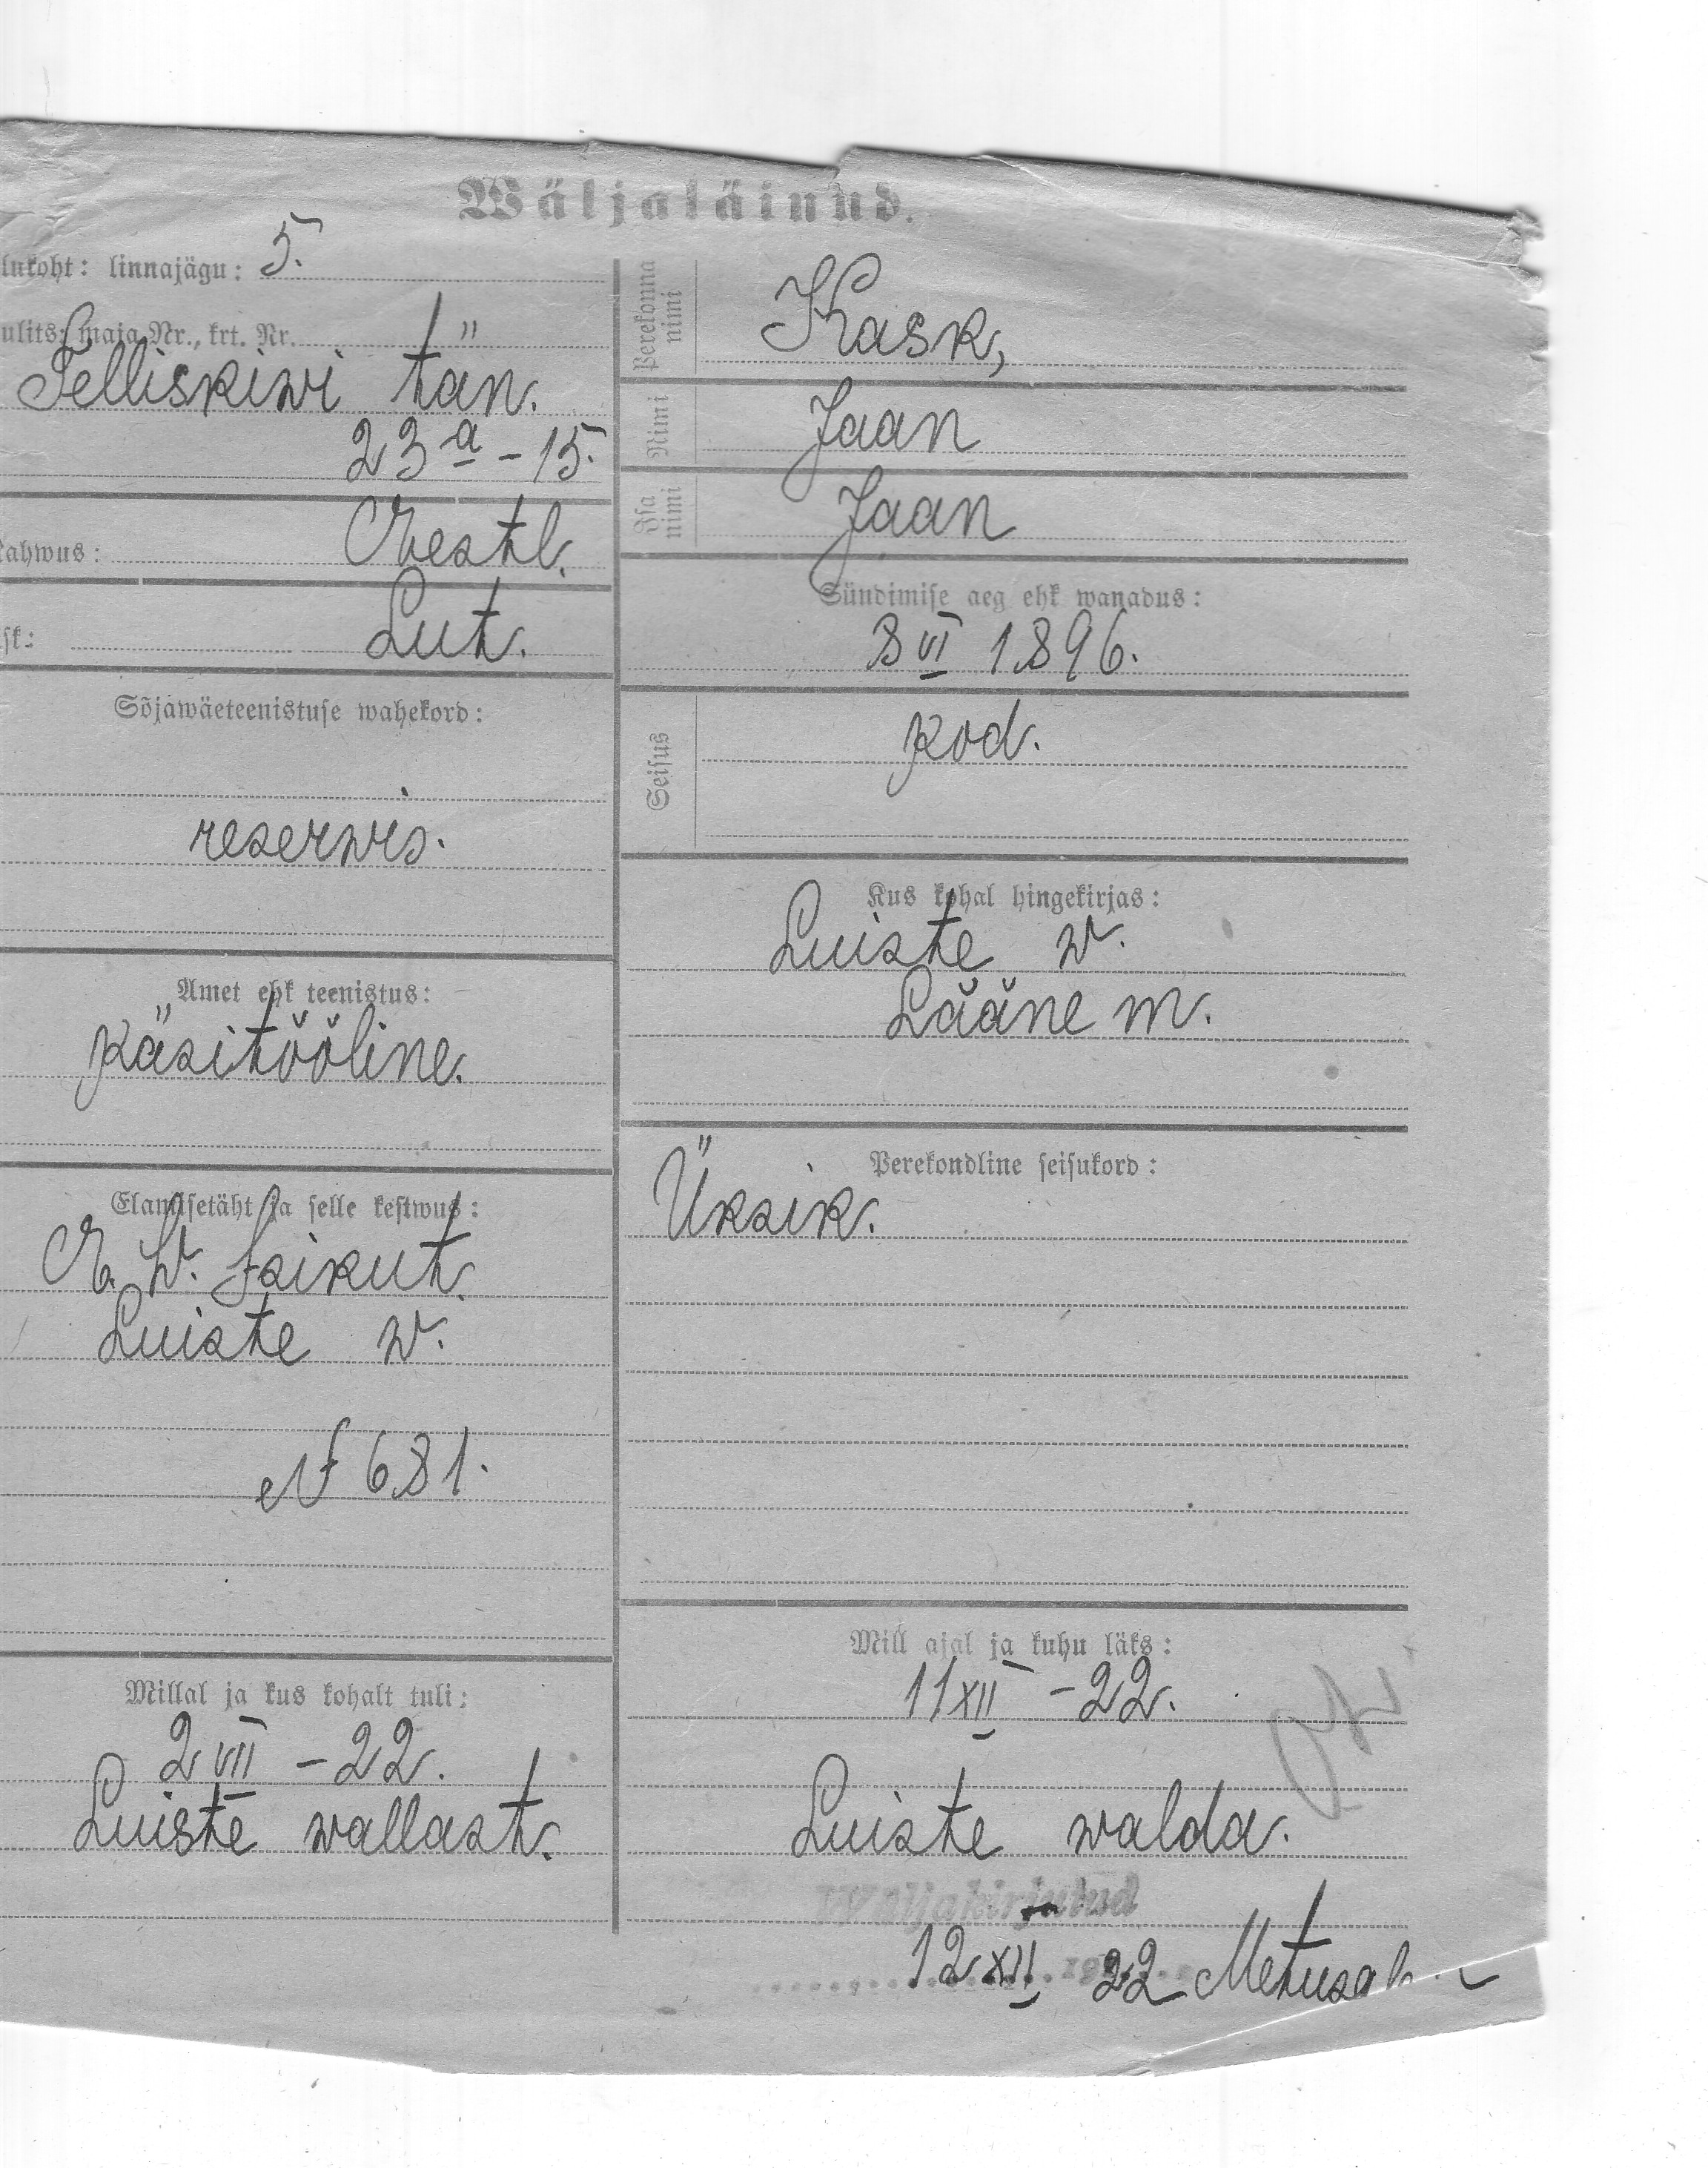 Wäljaläinud.
lukoht: linnajägu: 5.
ulits, maja Nr., krt. Nr. "
Telliskiwi tän.
23 a - 15.
ahwus: Eestl.
sk: Lut.
Sõjawäeteenistuse wahekord:
reserwis.
Amet ehk teenistus:
Käsitööline.
Elamisetäht ja selle kestwus:
E. W. Isikut.
Luiste w.
№ 681.
Millal ja kus kohalt tuli:
2 VII - 22.
Luiste wallast.
Perekonna nimi Kask,
Nimi Jaan
Isa nimi Jaan
Sündimise aeg ehk wanadus:
8 VI 1896.
Seisus kod.
Kus kohal hingekirjas:
Luiste w.
Lääne m.
Perekondline seisukord:
Üksik.
Mill ajal ja kuhu läks:
11 XII - 22.
Luiste walda.
Wäljakirjutud
12 XII 22